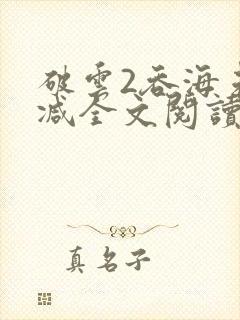 破雲2吞海
減全文閱讀
真名子